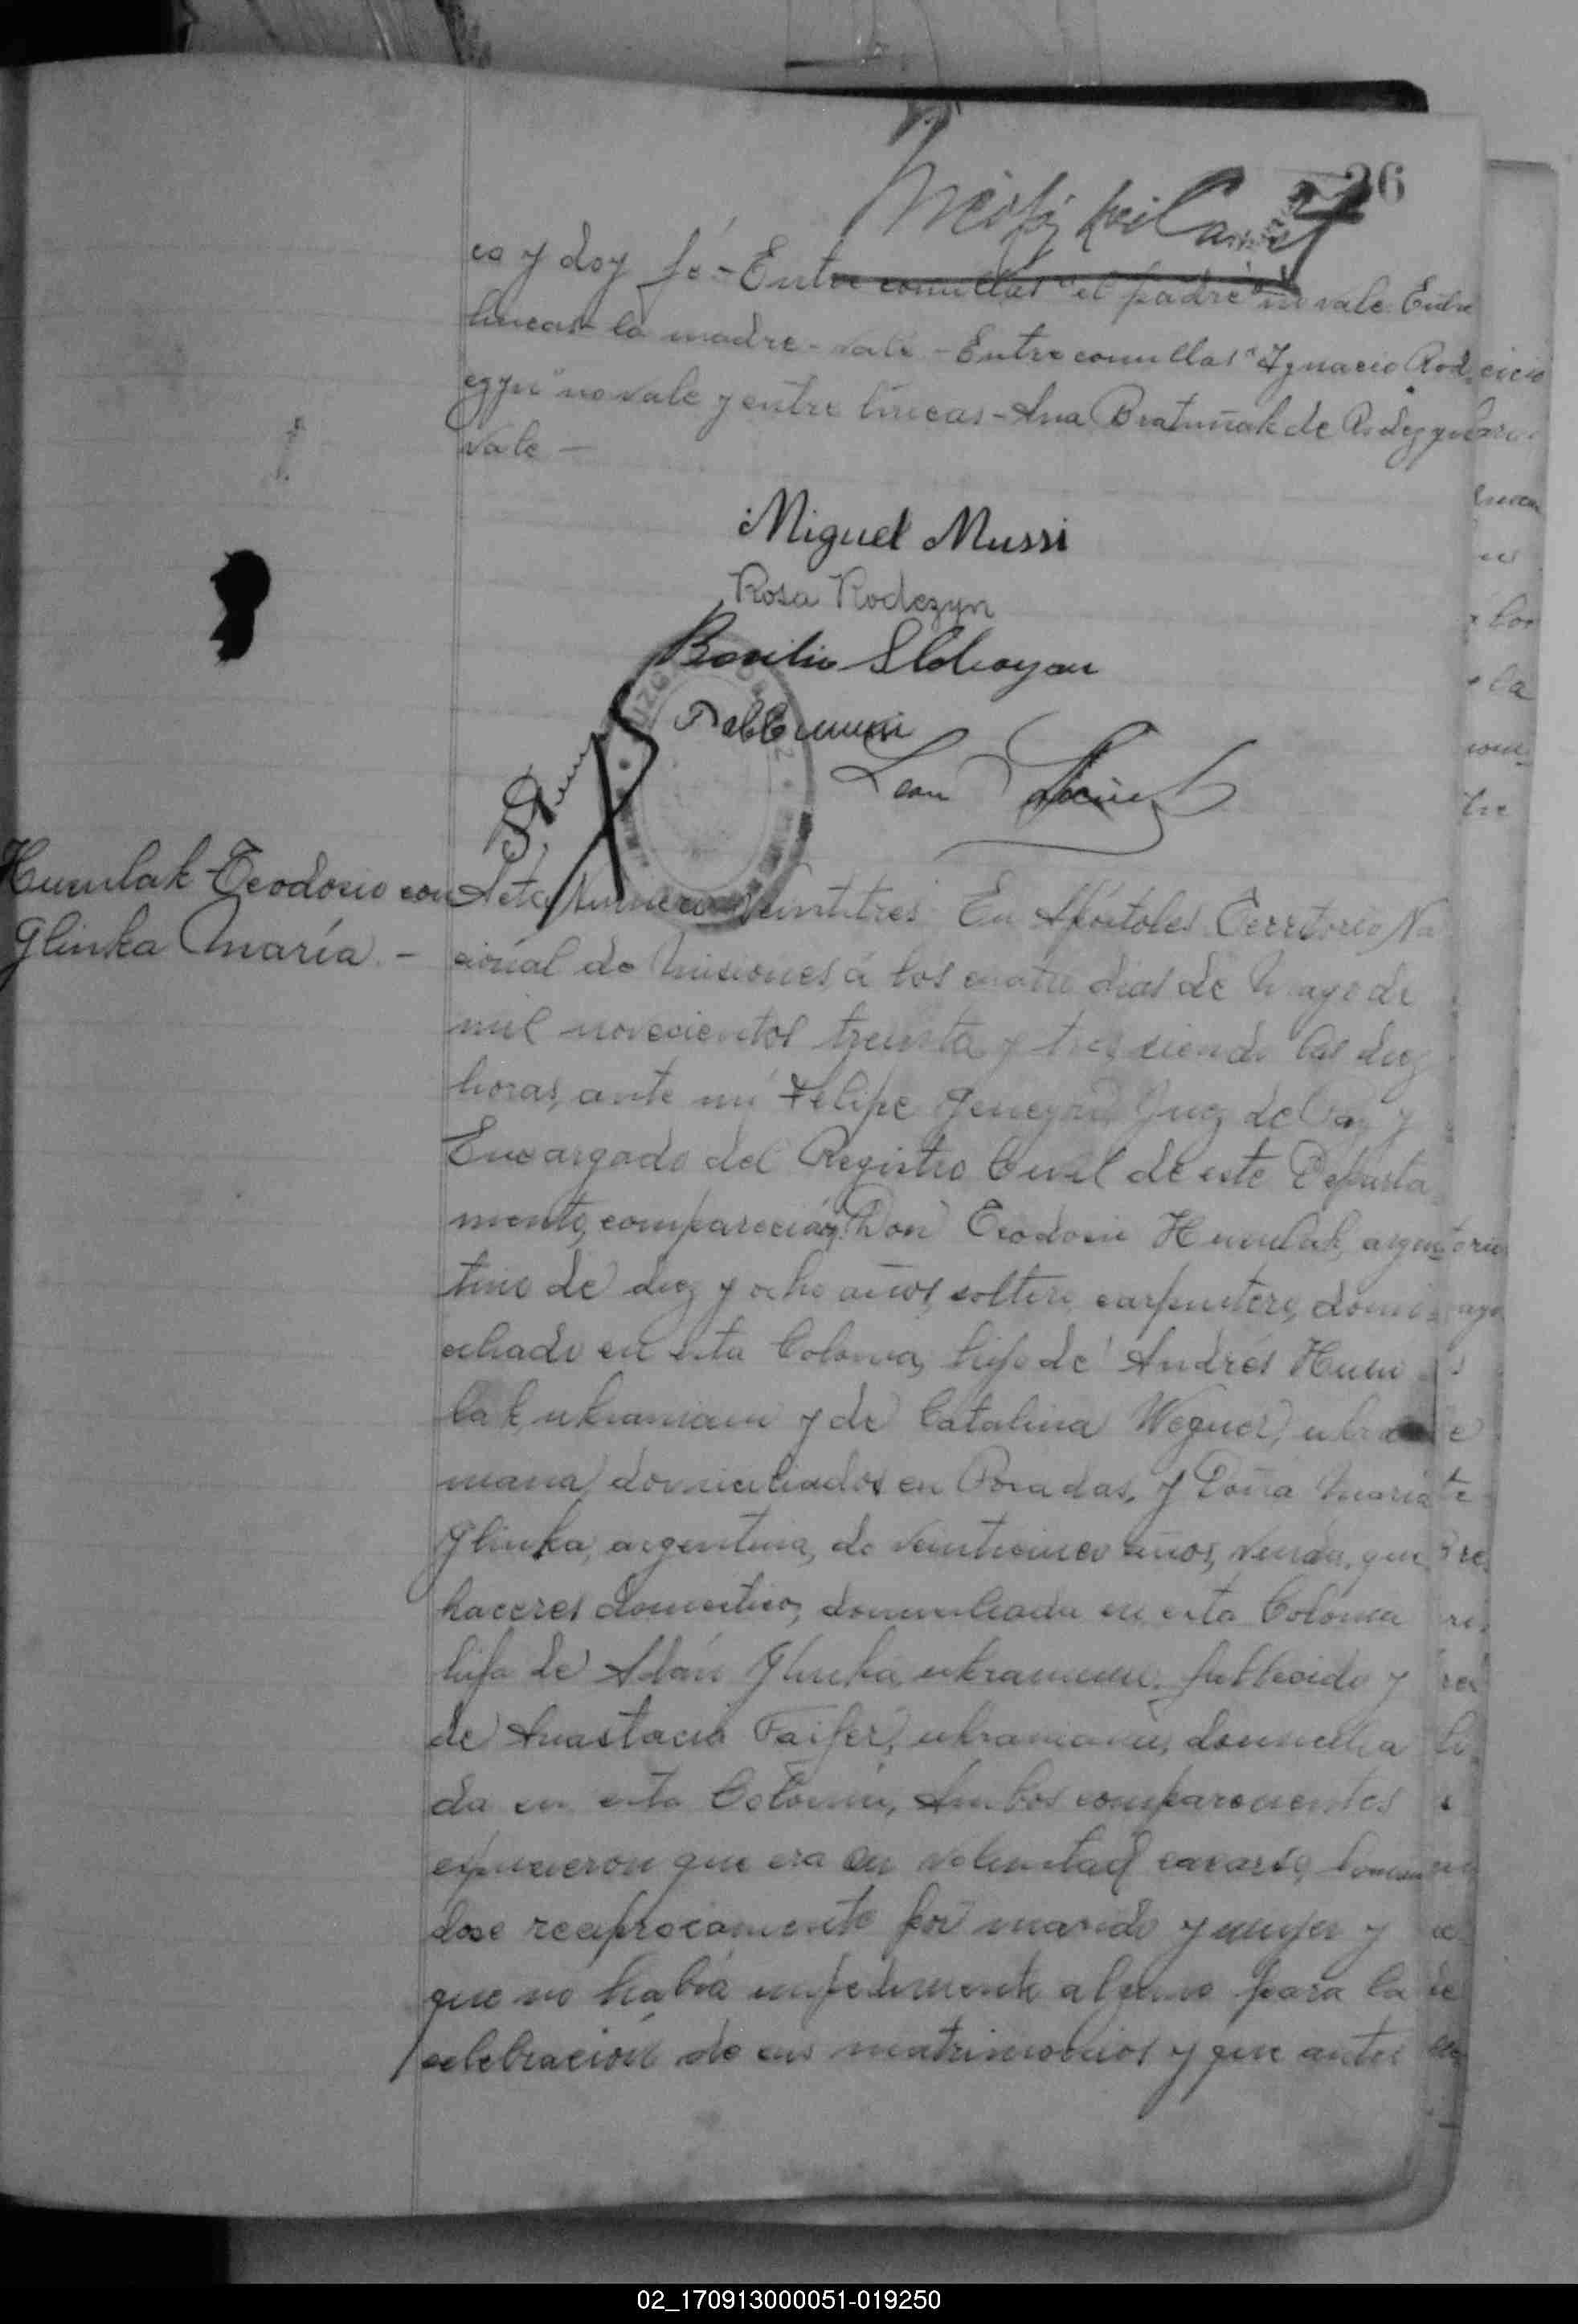 26
co y doy fé - Entre comillas "el padre" no vale. Entre
lineas - la madre - vale - Entre comillas "Ignacio Rod
czyn" no vale y entre líneas - Ana Bratuñak de Rodezyn
Vale -
Miguel Mussi
Rosa Rodezyn
Basilio
Leon
Humlak Teodosio con
Glinka María. -
Acta número veintitres. En Apóstoles Territorio Na
cional de Misiones, á los cuatro dias de Mayo de
mil novecientos treinta y tres, siendo las diez
horas, ante mi Felipe Juez de Paz y
Encargado del Registro Civil de este Departa
mento, comparecían: Don Teodosio Humlak, argen
tino de diez y ocho años, soltero, carpintero, domi
ciliado en esta Colonia, hijo de Andrés Hum
lak, ukraniano y de Catalina Wegner, ukra
niana, domiciliados en Posadas, y Doña María
Glinka, argentina, de veinticinco años, viuda, que
haceres domesticos, domiciliada en esta Colonia
hija de Adán Glinka, ukraniano, fallecido y
de Anastacia Faifer, ukraniana, domicilia
da en esta Colonia, Ambos comparecientes
expusieron que era su voluntad casarse, toman
dose reciprocamente por marido y mujer y
que no había impedimento alguno para la
celebracion de sus matrimonios y que antes
02_170913000051-019250